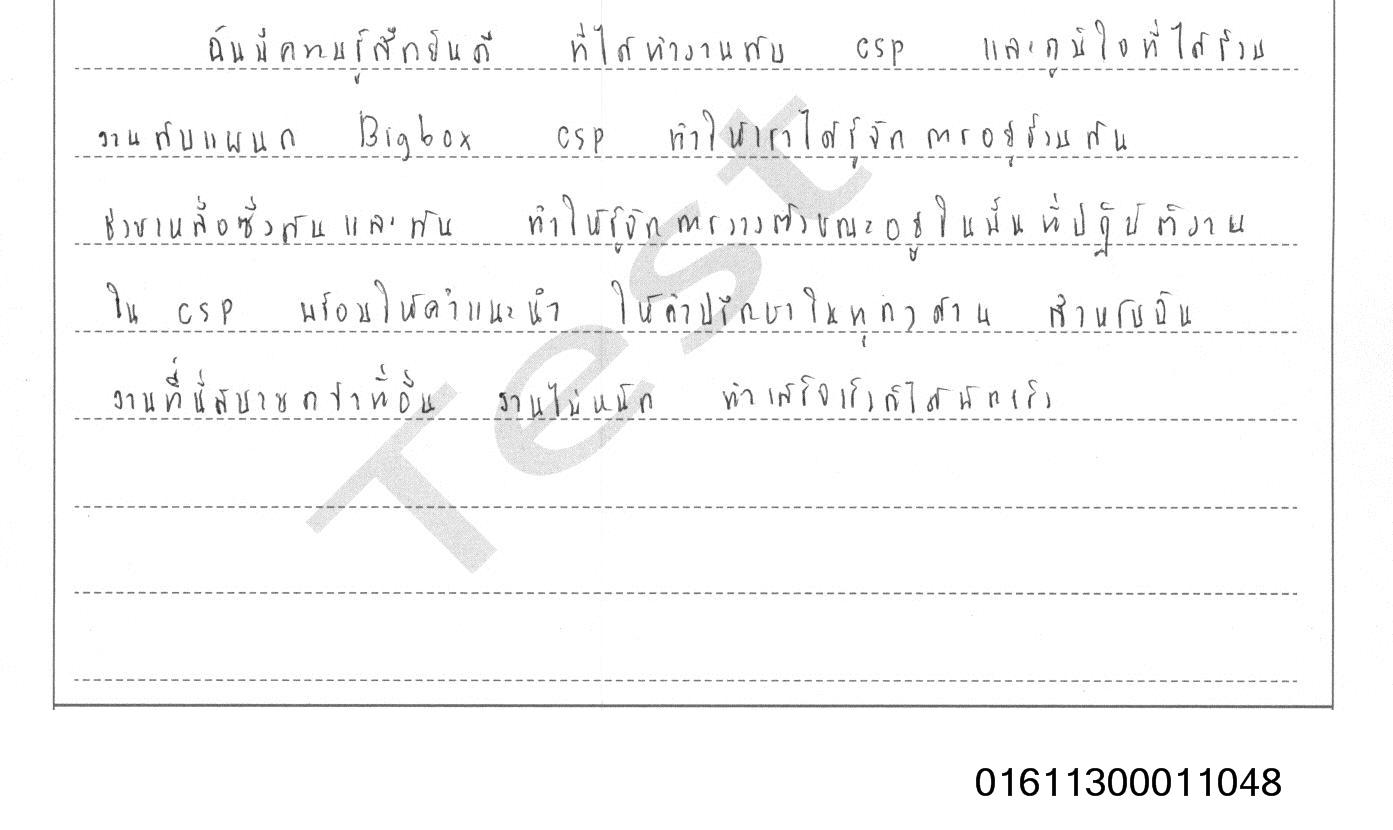 ฉันมีความรู้สึกยินดี ที่ได้ทำงานกับ CSP และภูมิใจที่ได้ร่วม
งานกับแผนก Bigbox CSP ทำให้เราได้รู้จักการอยู่ร่วมกัน
ช่วยเหลือซึ่งกันและกัน ทำให้รู้จักการวางตัวขณะอยู่ในพื้นที่ปฏิบัติงาน
ใน CSP พร้อมให้คำแนะนำ ให้คำปรึกษาในทุกๆด้าน สำหรับฉัน
งานที่นี่สบายกว่าที่อื่น งานไม่หนัก ทำเสร็จเร็วก็ได้พักเร็ว
Test
01611300011048